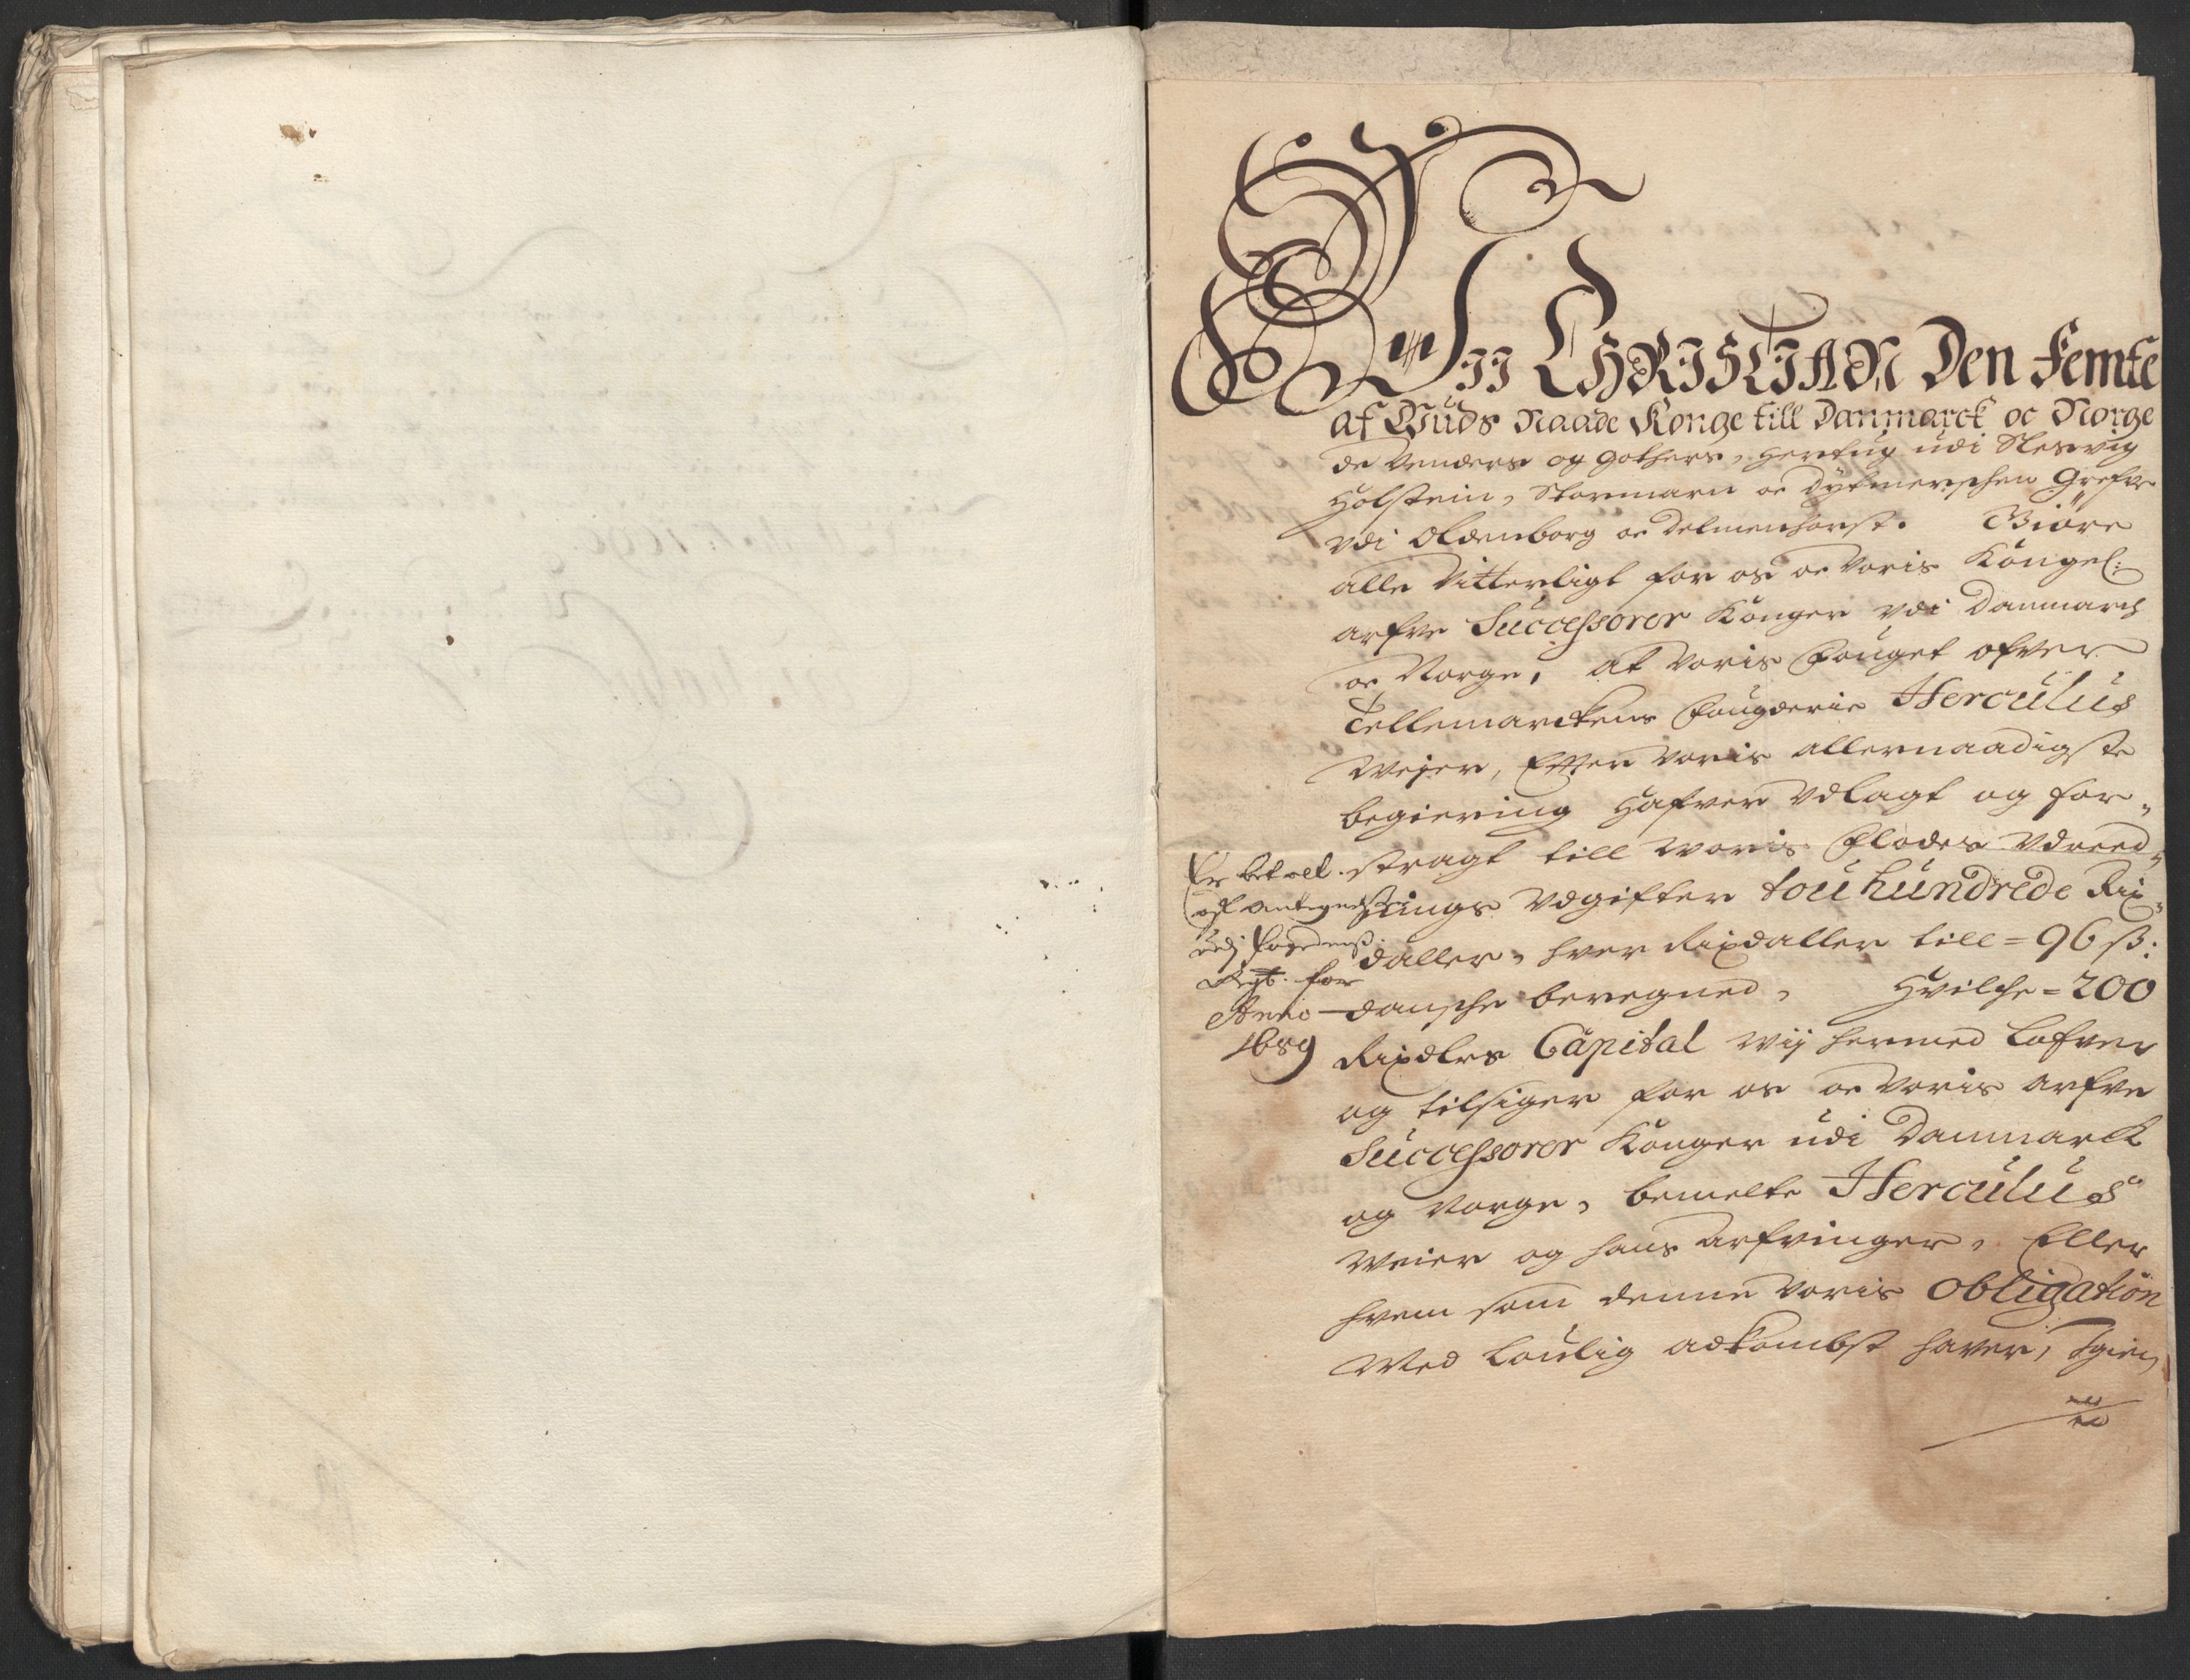 Wii CHRISTIAN Den Femte
af Guds Naade Konge till Danmarck oc Norge
de Venders og Gothers, Hertug udi Slesvig
Holstein, Stormarn oc Dytmerschen Grefve
vdi Oldenborg oc Delmenhorst. Giöre
alle Vitterligt for os oc Voris Kongel:
arfve Successorer Konger vdi Danmarch
oc Norge, at Voris Fouget ofver
Tellemarckens Fougderie Herculus
Weyer, Efter Voris allernaadigste
begiering Hafver Vdlagt og for„
stragt till Woris Flodes Vdreed„
nings Vdgifter tou hundrede Rix„
daller, hver Rixdaller till = 96 ß:
dansche beregned, Hvilche = 200
Rixdlrs Capital wij hermed Lofver
og tilsiger for os oc Voris arfve
Successorer Konger udi Danmarck
og Norge, bemelte Herculus
Weier og hans Arfvinger, Eller
hvem som denne Voris Obligation
Med Loulig adkombst haver, Igien
Er betalt
och antegnet
udj Fogdens
Regt. for
Anno
1689